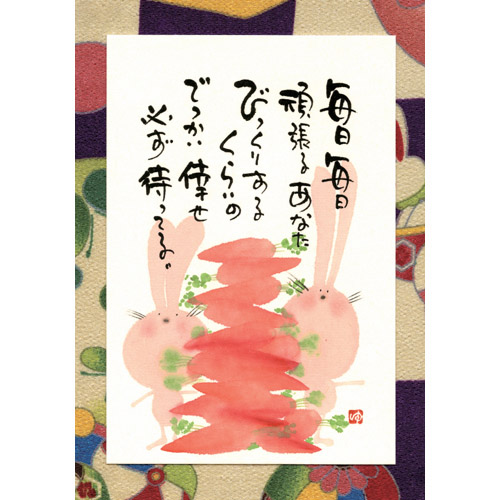 毎日毎日
頑張るあなた
びっくりする
くらいの
でっかい倖せ
必ず待ってるよ